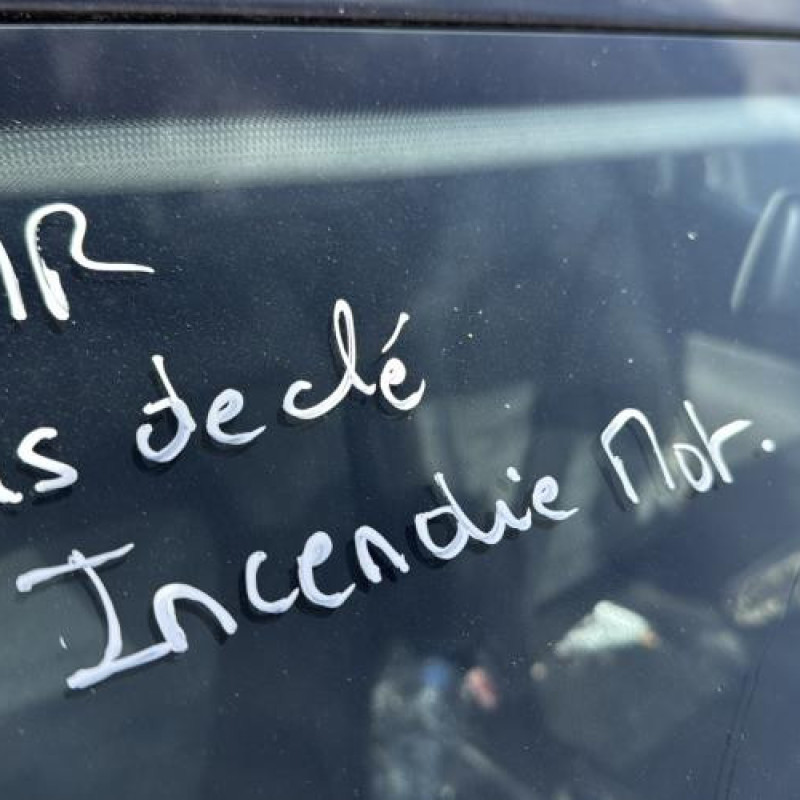 de clé
Incendie Mot.